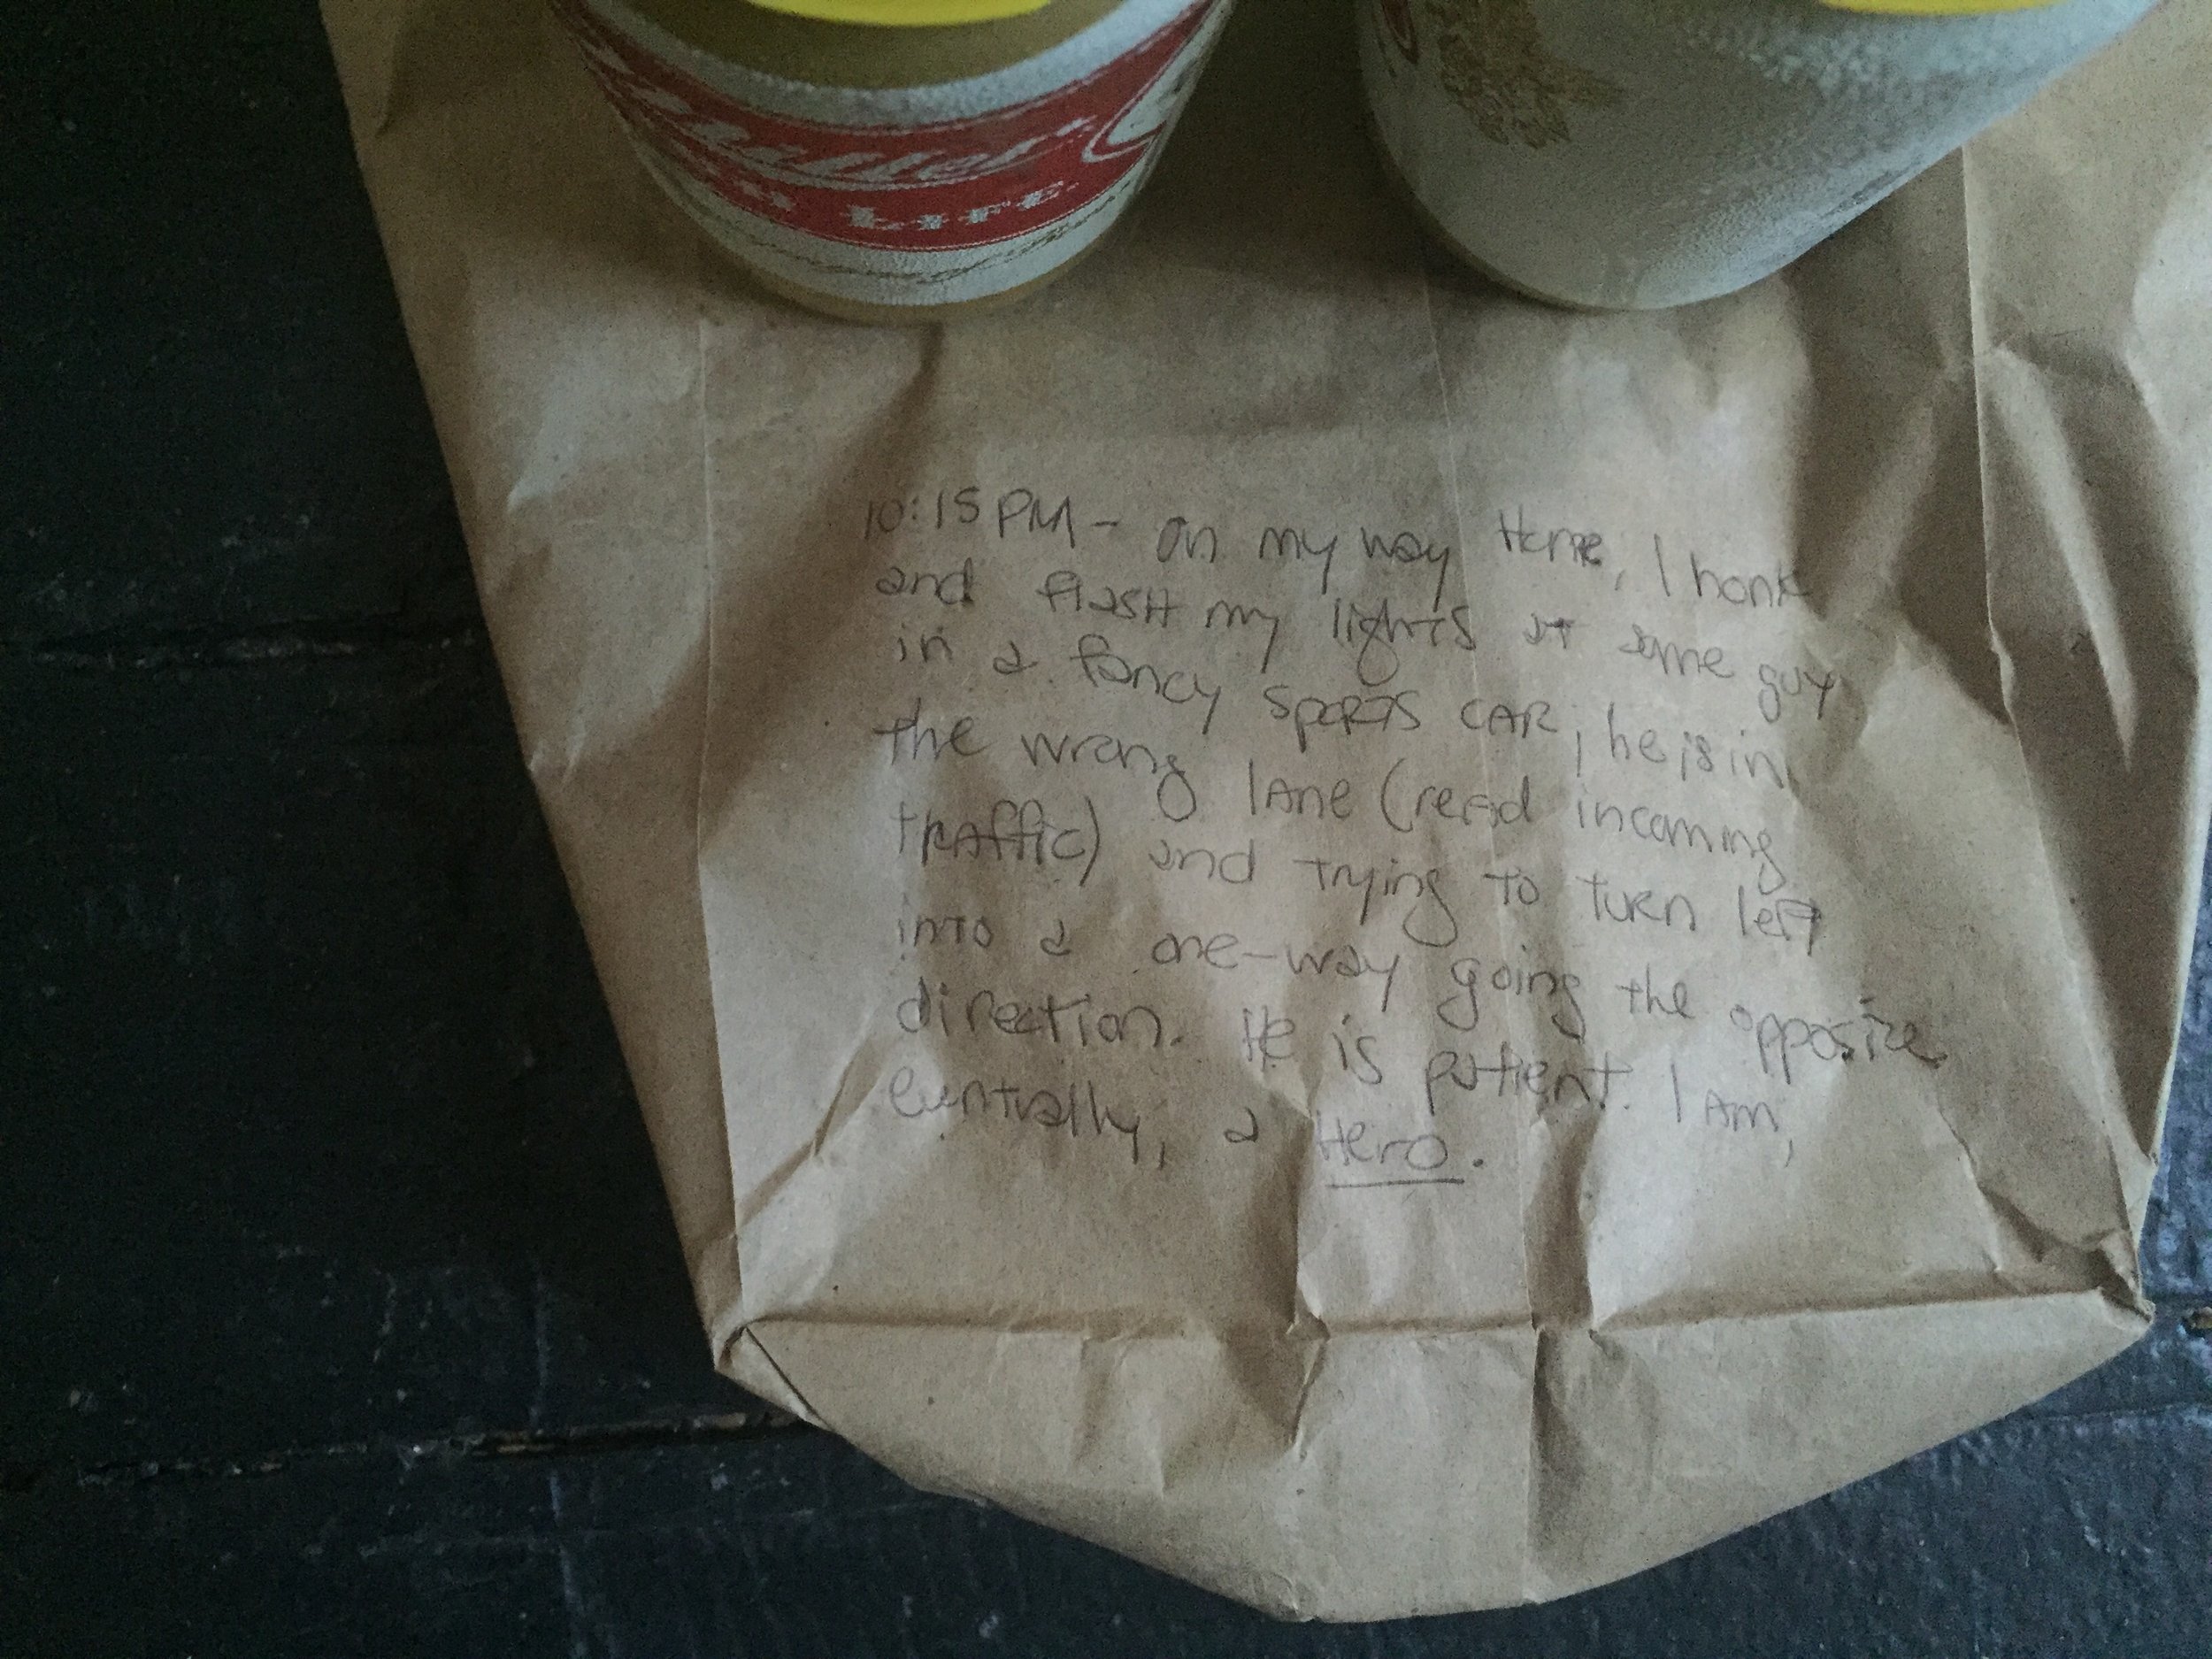 Miller
LIFE
10:15 PM - On my way Home, I honk
and flash my lights at some guy
in a fancy sports CAR; he is in
the wrong lane (read incoming
traffic) and trying to turn left
into a one-way going the opposite
direction. He is patient. I Am,
euntually, a Hero.